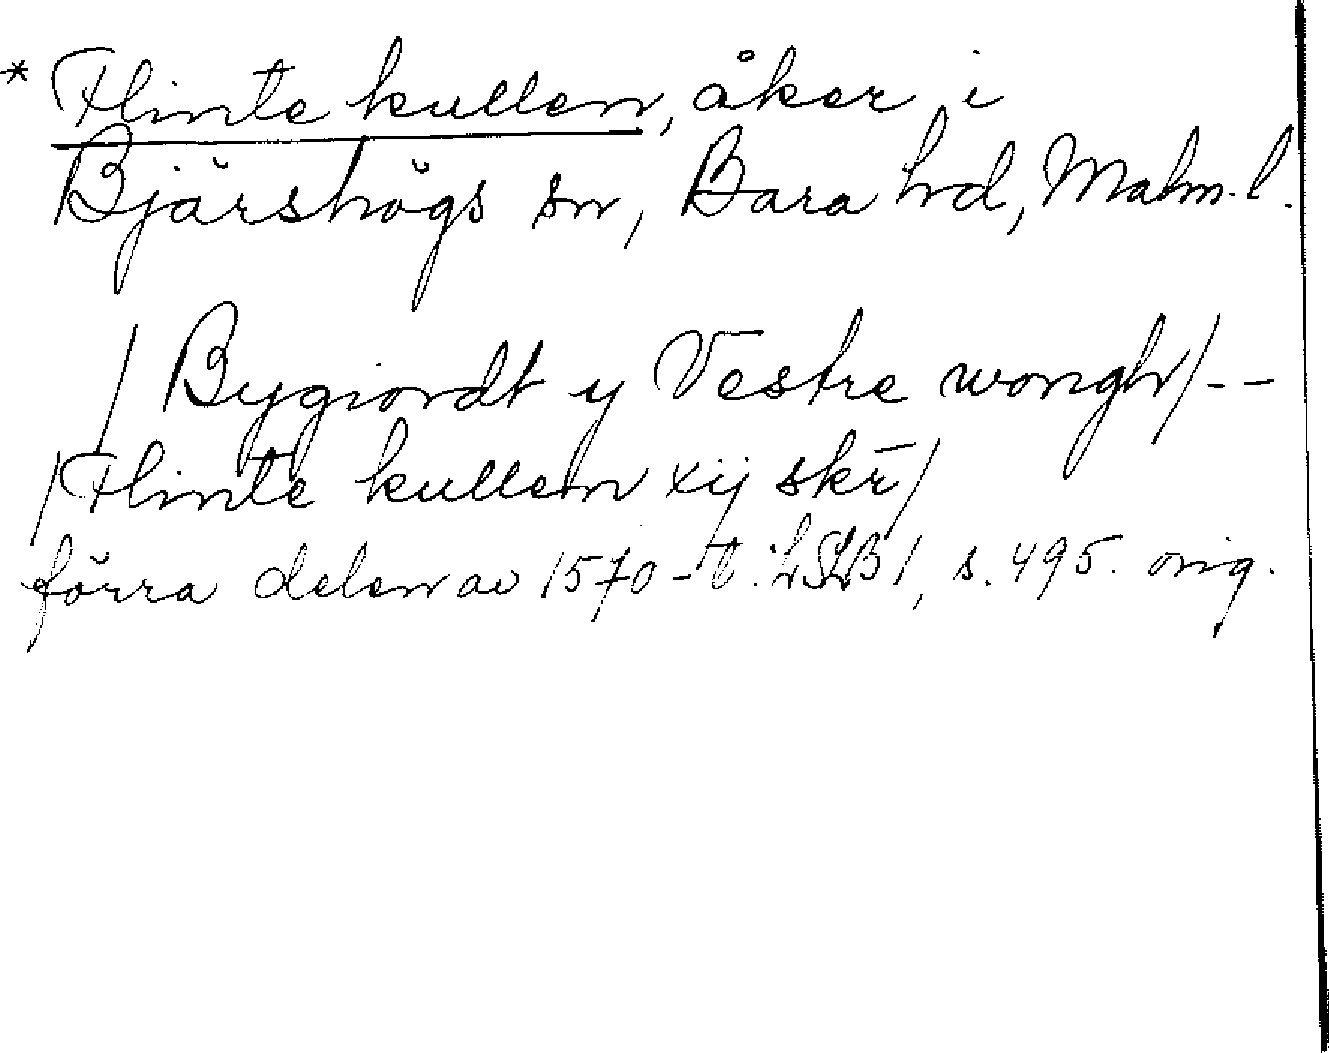 * Flinte kullen, åker i
Bjärshögs sn, Bara hd, Malm. l.
/ Bygiordt y Vestre wongh / - -
/ Flinte kullen xij skr̄ /
förra delen av 1570-t. LSLB 1, s. 495. orig.